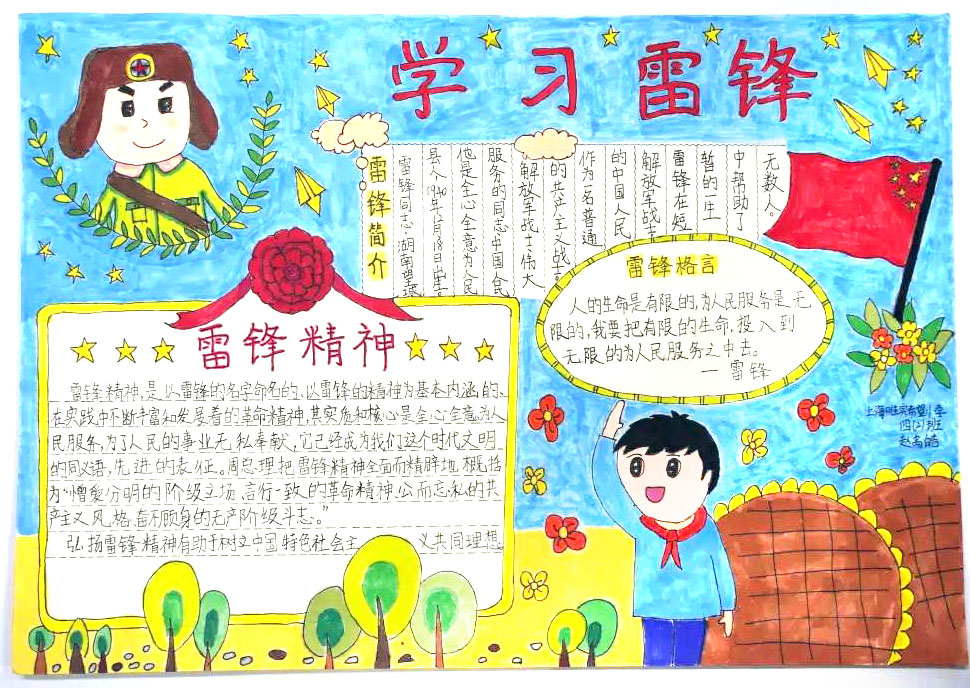 学习雷锋
雷锋简介
雷锋同志,湖南望城
县人1940年12月18日出生。
他是全心全意为人民
服务的同志中国人民
解放军战士,伟大
的共产主义战士。
作为一名普通
的中国人民
解放军战士
雷锋在短
暂的一生
中帮助了
无数人。
雷锋格言
人的生命是有限的,为人民服务是无
限的,我要把有限的生命,投入到
无限的为人民服务之中去。
一雷锋
雷锋精神
雷锋精神,是以雷锋的名字命名的,以雷锋的精神为基本内涵的,
在实践中不断丰富和发展着的革命精神,其实质和核心是全心全意为人
民服务,为了人民的事业无私奉献,它已经成为我们这个时代文明
的同义语,先进的表征。周总理把雷锋精神全面而精辟地概括
为“憎爱分明的阶级立场、言行一致的革命精神、公而忘私的共
产主义风格、奋不顾身的无产阶级斗志。”
弘扬雷锋精神有助于树立中国特色社会主义共同理想。
四(2)班